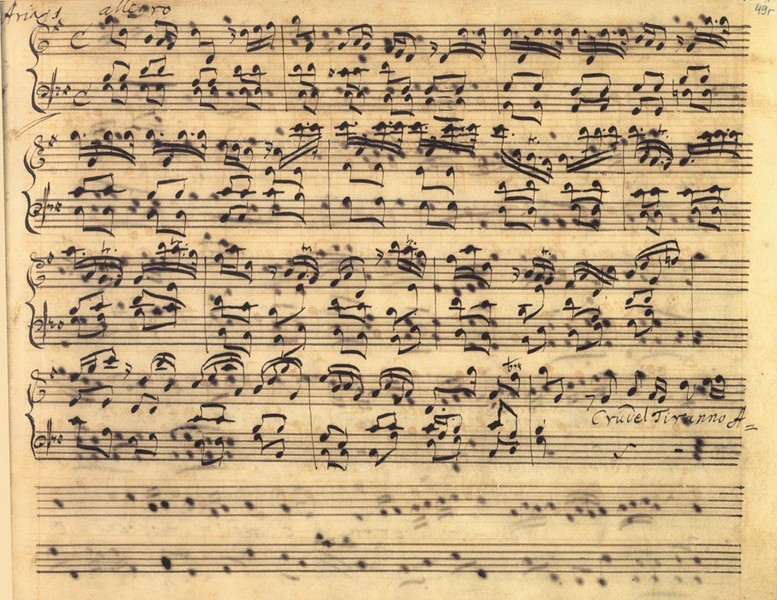 Aria allegro
49r
Crudel Tiranno A=